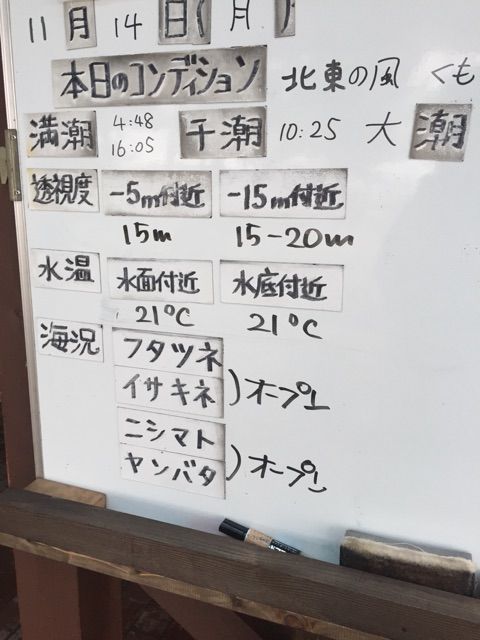 11月14日(月)
本日のコンディション 北東の風 くも
満潮 4:48 16:05 干潮 10:25 大潮
透視度 -5m付近 -15m付近
15m 15-20m
水温 水面付近 水底付近
21℃ 21℃
海況 フタツネ
イサキネ )オープン
ニシマト
ヤンバタ )オープン